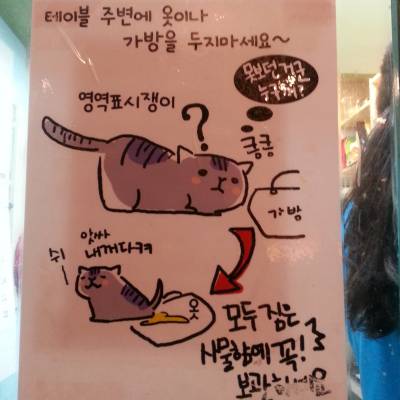 테이블 주변에 옷이나
가방을 두지마세요~
못보던거군
누구꺼?
영역표시쟁이
?
킁킁
가방
앗싸
내꺼다ㅋㅋ
쉬
옷
모두 짐은
사물함에 꼭!
보관하세요